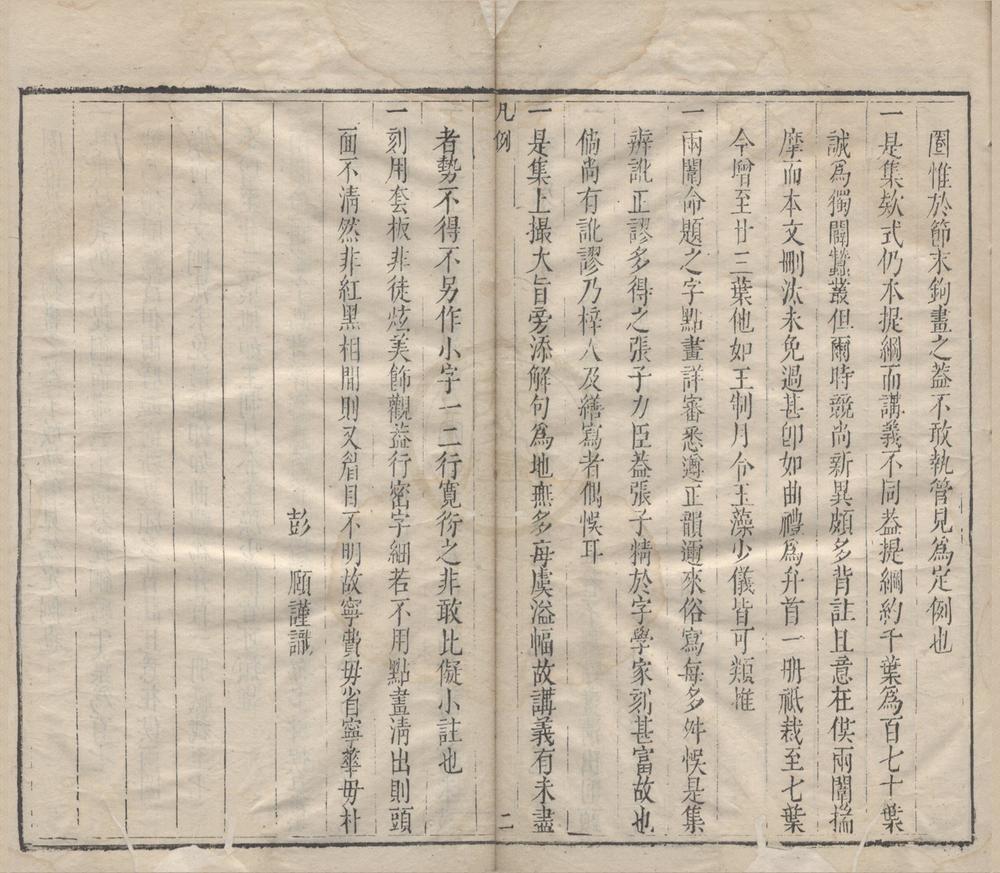 圈惟於節末鉤畫之葢不敢執管見為定例也
一是集欵式仍本提綱而講義不同葢提綱約千葉為百七十葉
誠為獨闢蠶叢但爾時競尚新異頗多背註且意在俟兩闈揣
摩而本文刪汰未免過甚卽如曲禮為弁首一册祇裁至七葉
今增至廿三葉他如王制月令玉藻少儀皆可類惟
一兩闈命題之字點畫詳審悉遵正韻邇來俗寫每多舛悞是集
辨訛正謬多得之張子力臣葢張子精於字學家刻甚富故也
倘尚有訛謬乃梓人及繕寫者偶悞耳
一是集上撮大旨旁添解句為地無多每虞溢幅故講義有未盡
凡例
二
者勢不得不另作小字一二行寬衍之非敢比儗小註也
一刻用套板非徒炫美飾觀葢行密字細若不用點畫淸出則頭
面不淸然非紅黑相間則又眉目不明故寧費毋省寧華毋朴
彭 頋謹識